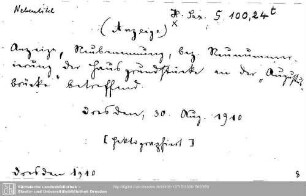 Nebentitel
H. Sax. G 100,24t
x
(Anzeige)
Anzeige, Neubenennung, bez. Neunummer-
ierung der Hausgrundstücke an der "Augustus-
brücke" betreffend.
Dresden, 30. Aug. 1910
[hektographiert]
Dresden 1910
8
Sächsische Landesbibliothek -
Staats- und Universitätsbibliothek Dresden